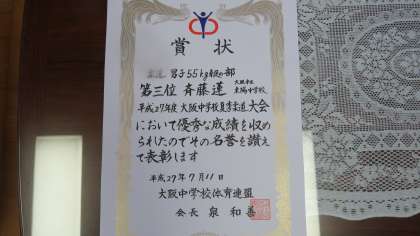 賞状
柔道 男子55kg級の部
第三位 斉藤蓮
東陽中学校
平成27年度 大阪中学校夏季柔道大会
において優秀な成績を収め
られたのでその名誉を讃え
て表彰します
平成27年7月11日
大阪中学校体育連盟
会長 泉 和善